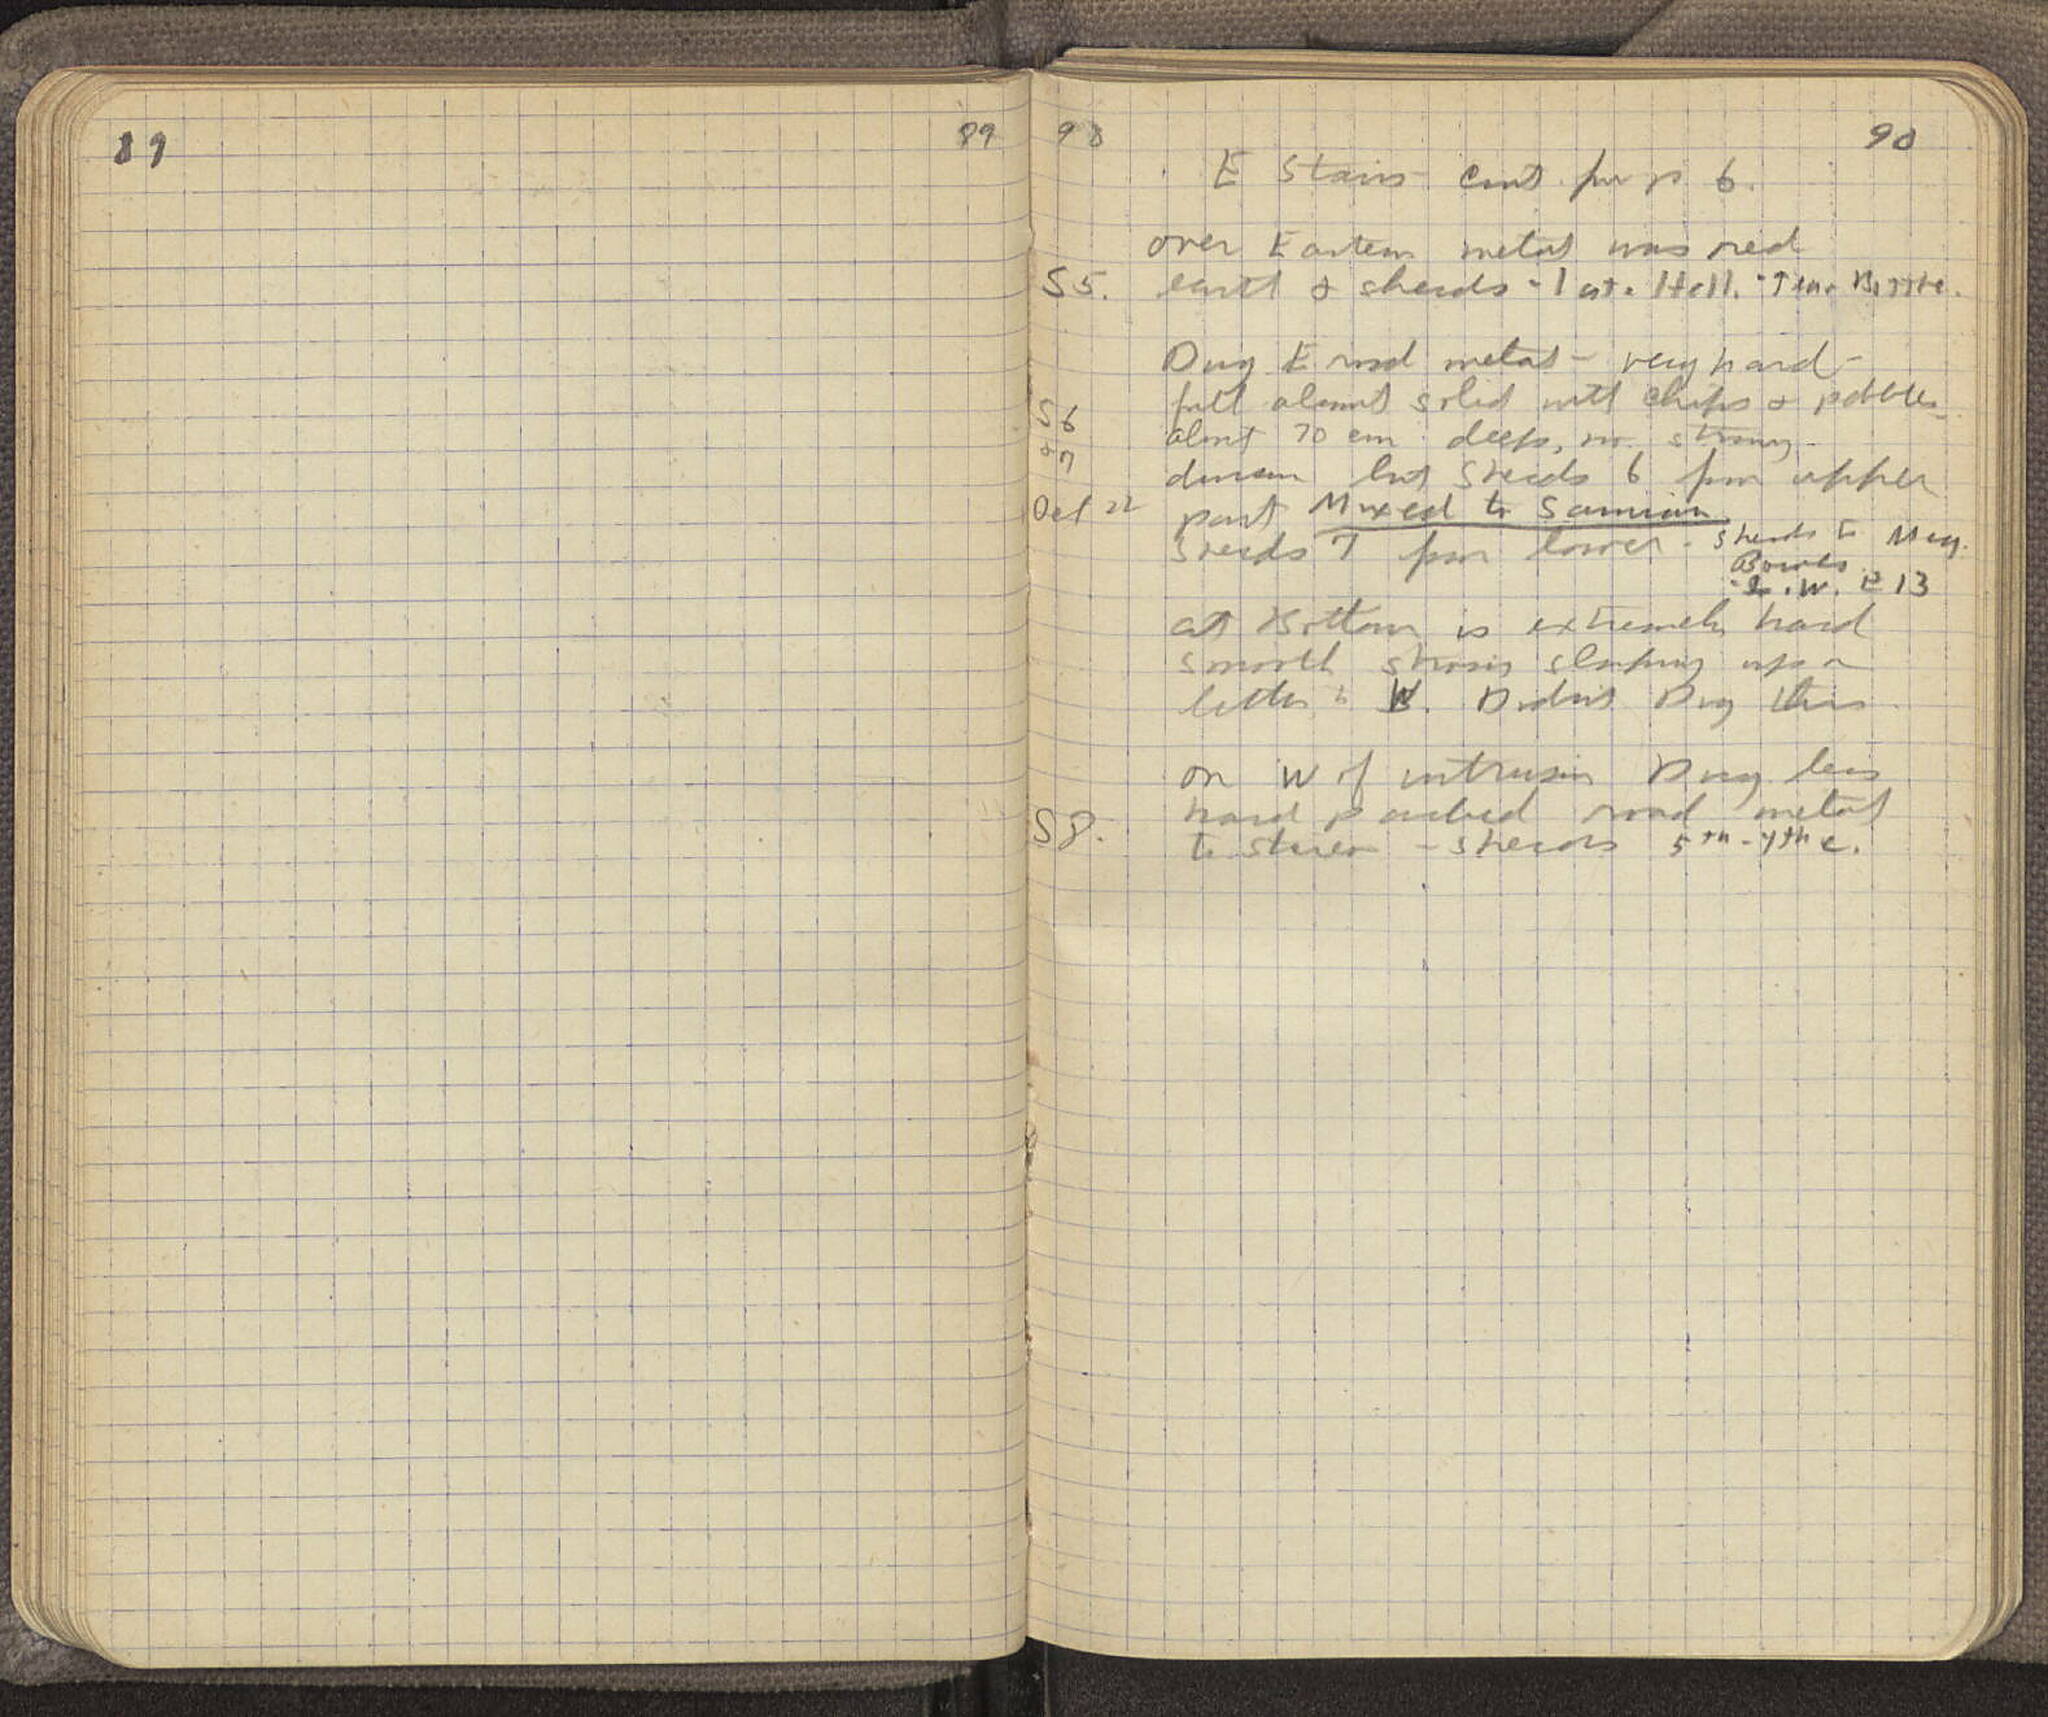 89 89
90 90
E Stairs cont. from p 6.
over Eastern metal was red
S5. earth & sherds - Late Hell.
Dug E road metal - very hard -
full almost solid with chips & pebbles
S6 about 70 cm deep, no strong
& 7 division but sherds 6 from upper
Oct 22 part Mixed to Samian
sherds 7 from lower - sherds to Meg.
Bowls
L.W. P 13
at bottom is extremely hard
smooth strosis sloping up a
little to W. Didnt Dig this
on W of intrusion Dug less
hard packed road metal
S8. to stereo - sherds 5th - 4th c.